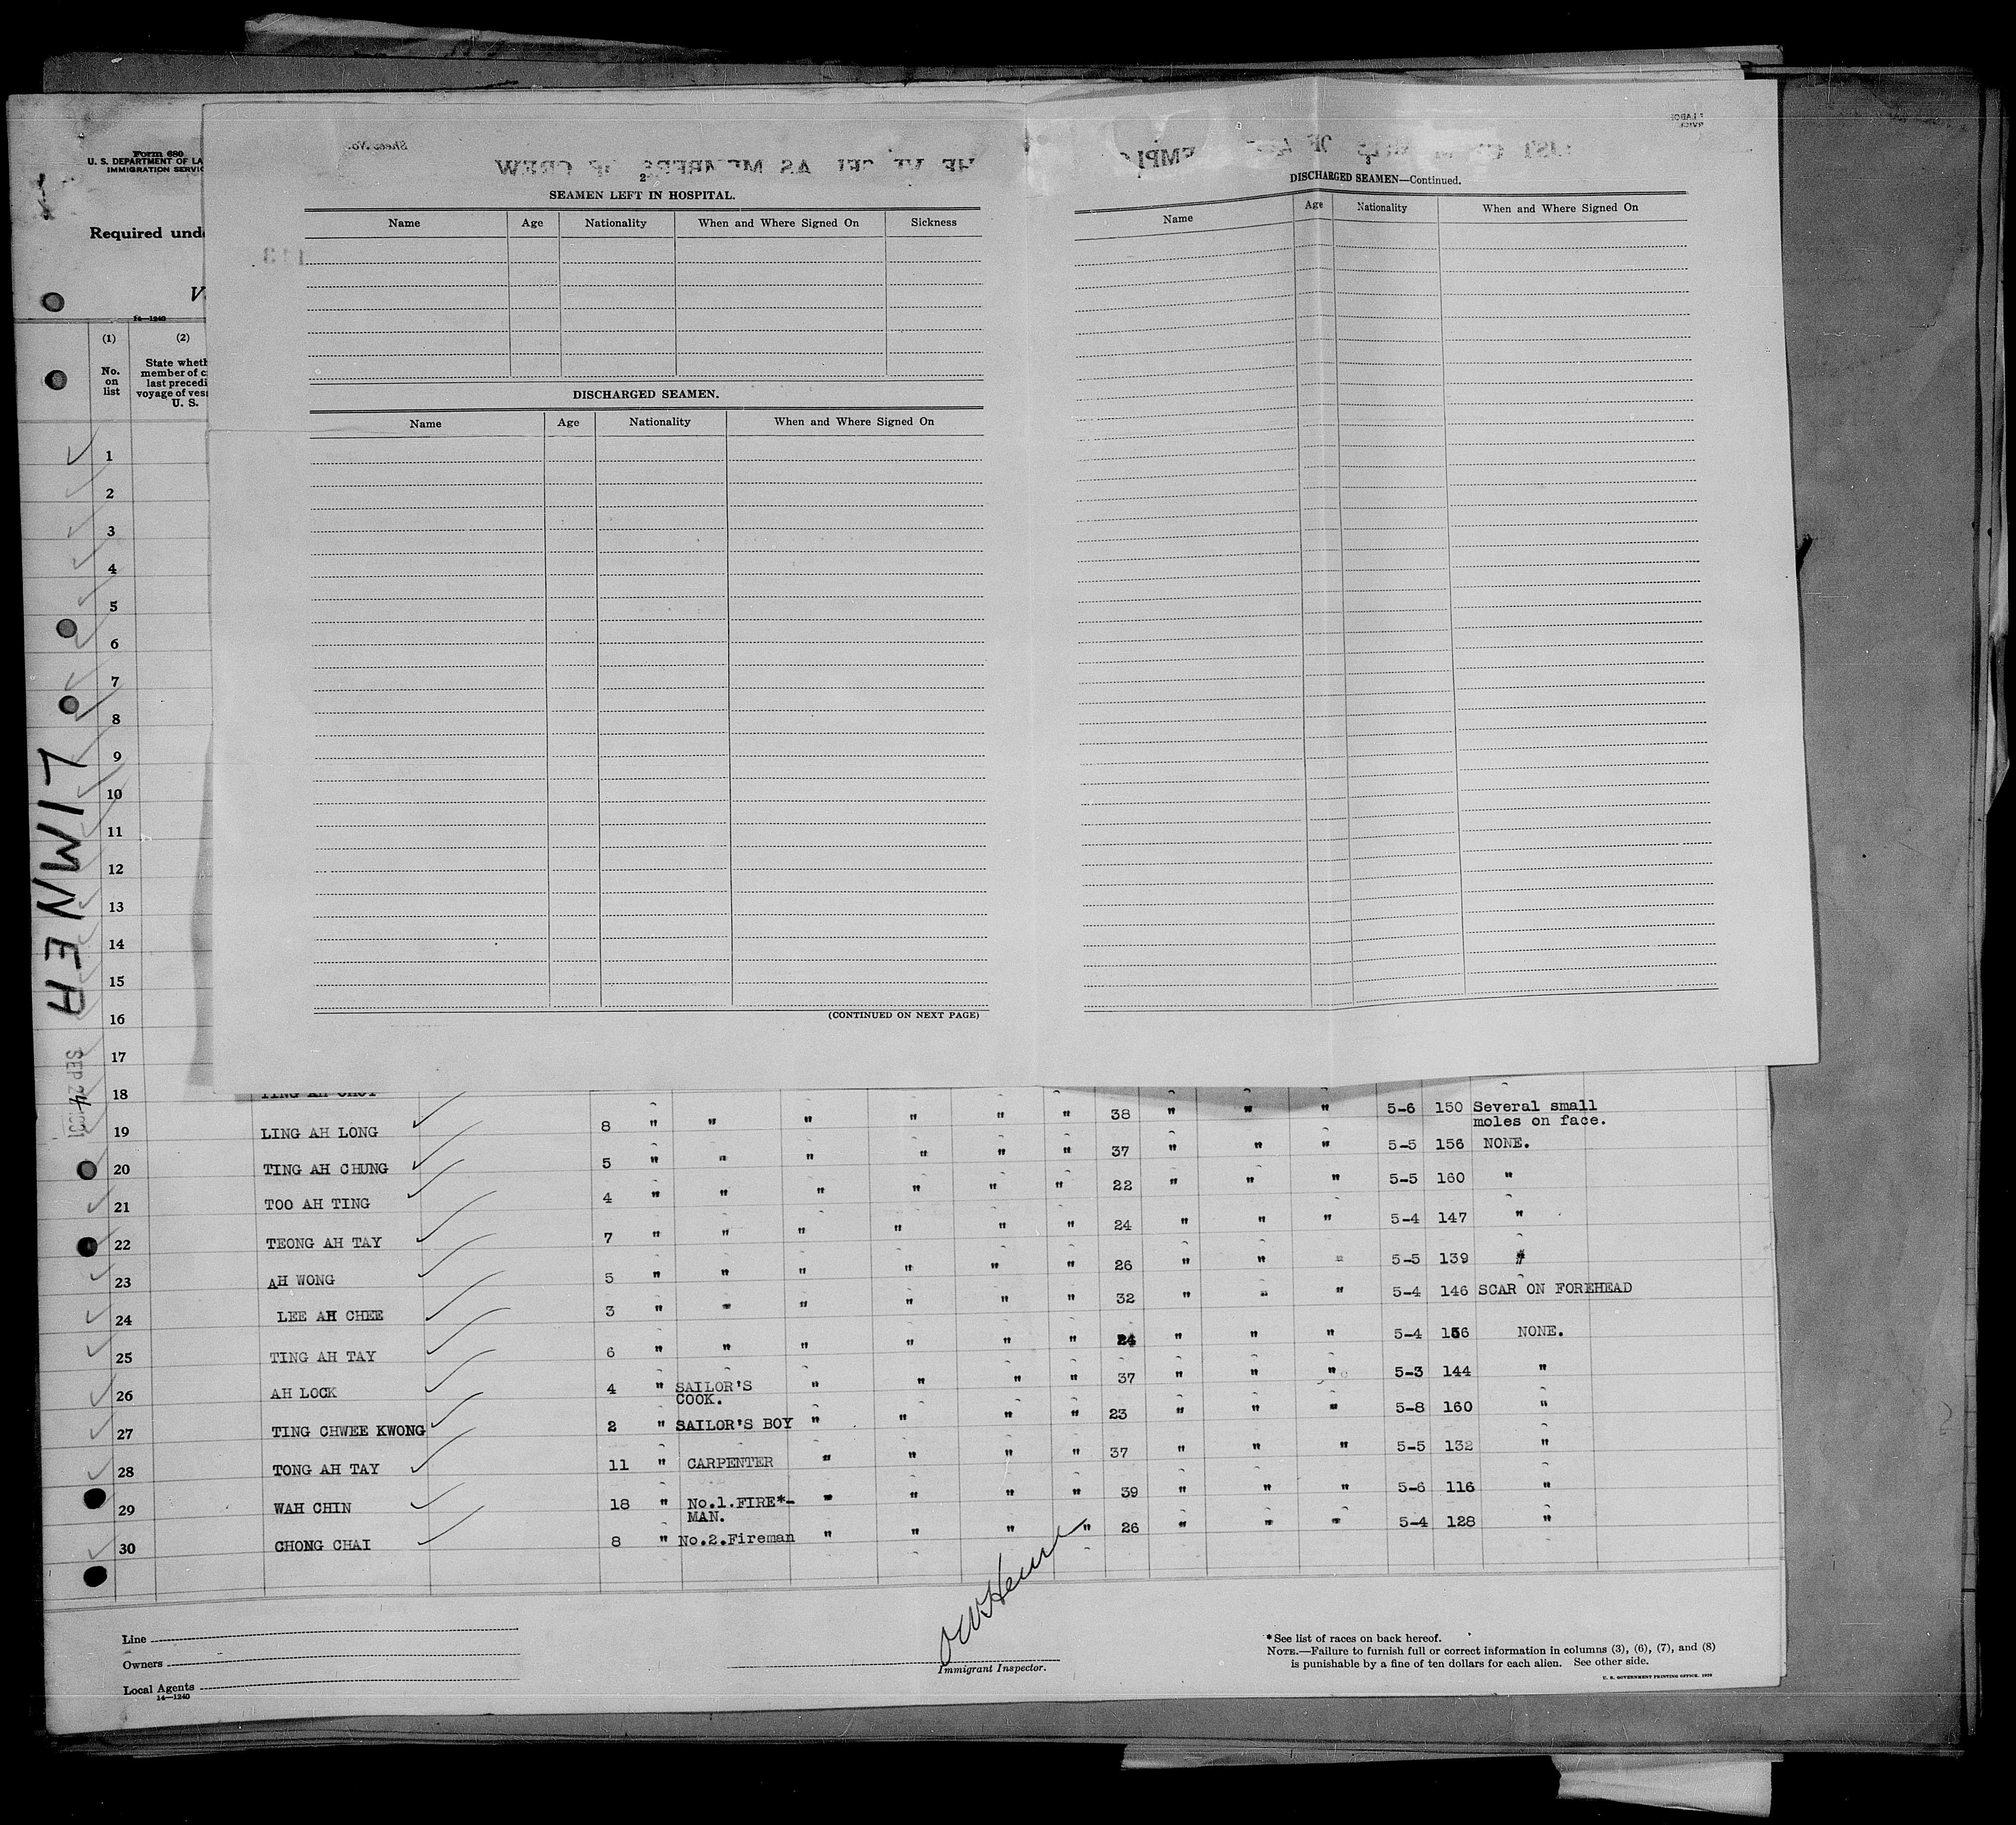 Form 680
U. S. DEPARTMENT OF LA
IMMIGRATION SERVIC
Required und
V
14—1240
(1) (2)
No. on list
State wheth
member of c
last precedi
voyage of ves
U. S.
Sheet No.
2
SEAMEN LEFT IN HOSPITAL.
Name Age Nationality When and Where Signed On Sickness
DISCHARGED SEAMEN.
Name Age Nationality When and Where Signed On
(CONTINUED ON NEXT PAGE)
3
DISCHARGED SEAMEN—Continued.
Name Age Nationality When and Where Signed On
1
2
3
4
5
6
7
8
9
10
11
12
13
14
15
16
17
18
19 LING AH LONG 8 " " " " " " 38 " " " 5-6 150 Several small
moles on face.
20 TING AH CHUNG 5 " " " " " " 37 " " " 5-5 156 NONE.
21 TOO AH TING 4 " " " " " " 22 " " " 5-5 160 "
22 TEONG AH TAY 7 " " " " " " 24 " " " 5-4 147 "
23 AH WONG 5 " " " " " " 26 " " " 5-5 139 "
24 LEE AH CHEE 3 " " " " " " 32 " " " 5-4 146 SCAR ON FOREHEAD
25 TING AH TAY 6 " " " " " " 24 " " " 5-4 156 NONE.
26 AH LOCK 4 " SAILOR'S " " " " 37 " " " 5-3 144 "
COOK.
27 TING CHWEE KWONG 2 " SAILOR'S BOY " " " " 23 " " " 5-8 160 "
28 TONG AH TAY 11 " CARPENTER " " " " 37 " " " 5-5 132 "
29 WAH CHIN 18 " No.1.FIRE*- " " " " 39 " " " 5-6 116 "
MAN.
30 CHONG CHAI 8 " No.2.Fireman " " " " 26 " " " 5-4 128 "
Line
Owners
Local Agents
14—1240
Immigrant Inspector.
* See list of races on back hereof.
NOTE.—Failure to furnish full or correct information in columns (3), (6), (7), and (8)
is punishable by a fine of ten dollars for each alien. See other side.
U. S. GOVERNMENT PRINTING OFFICE.
SEP 24